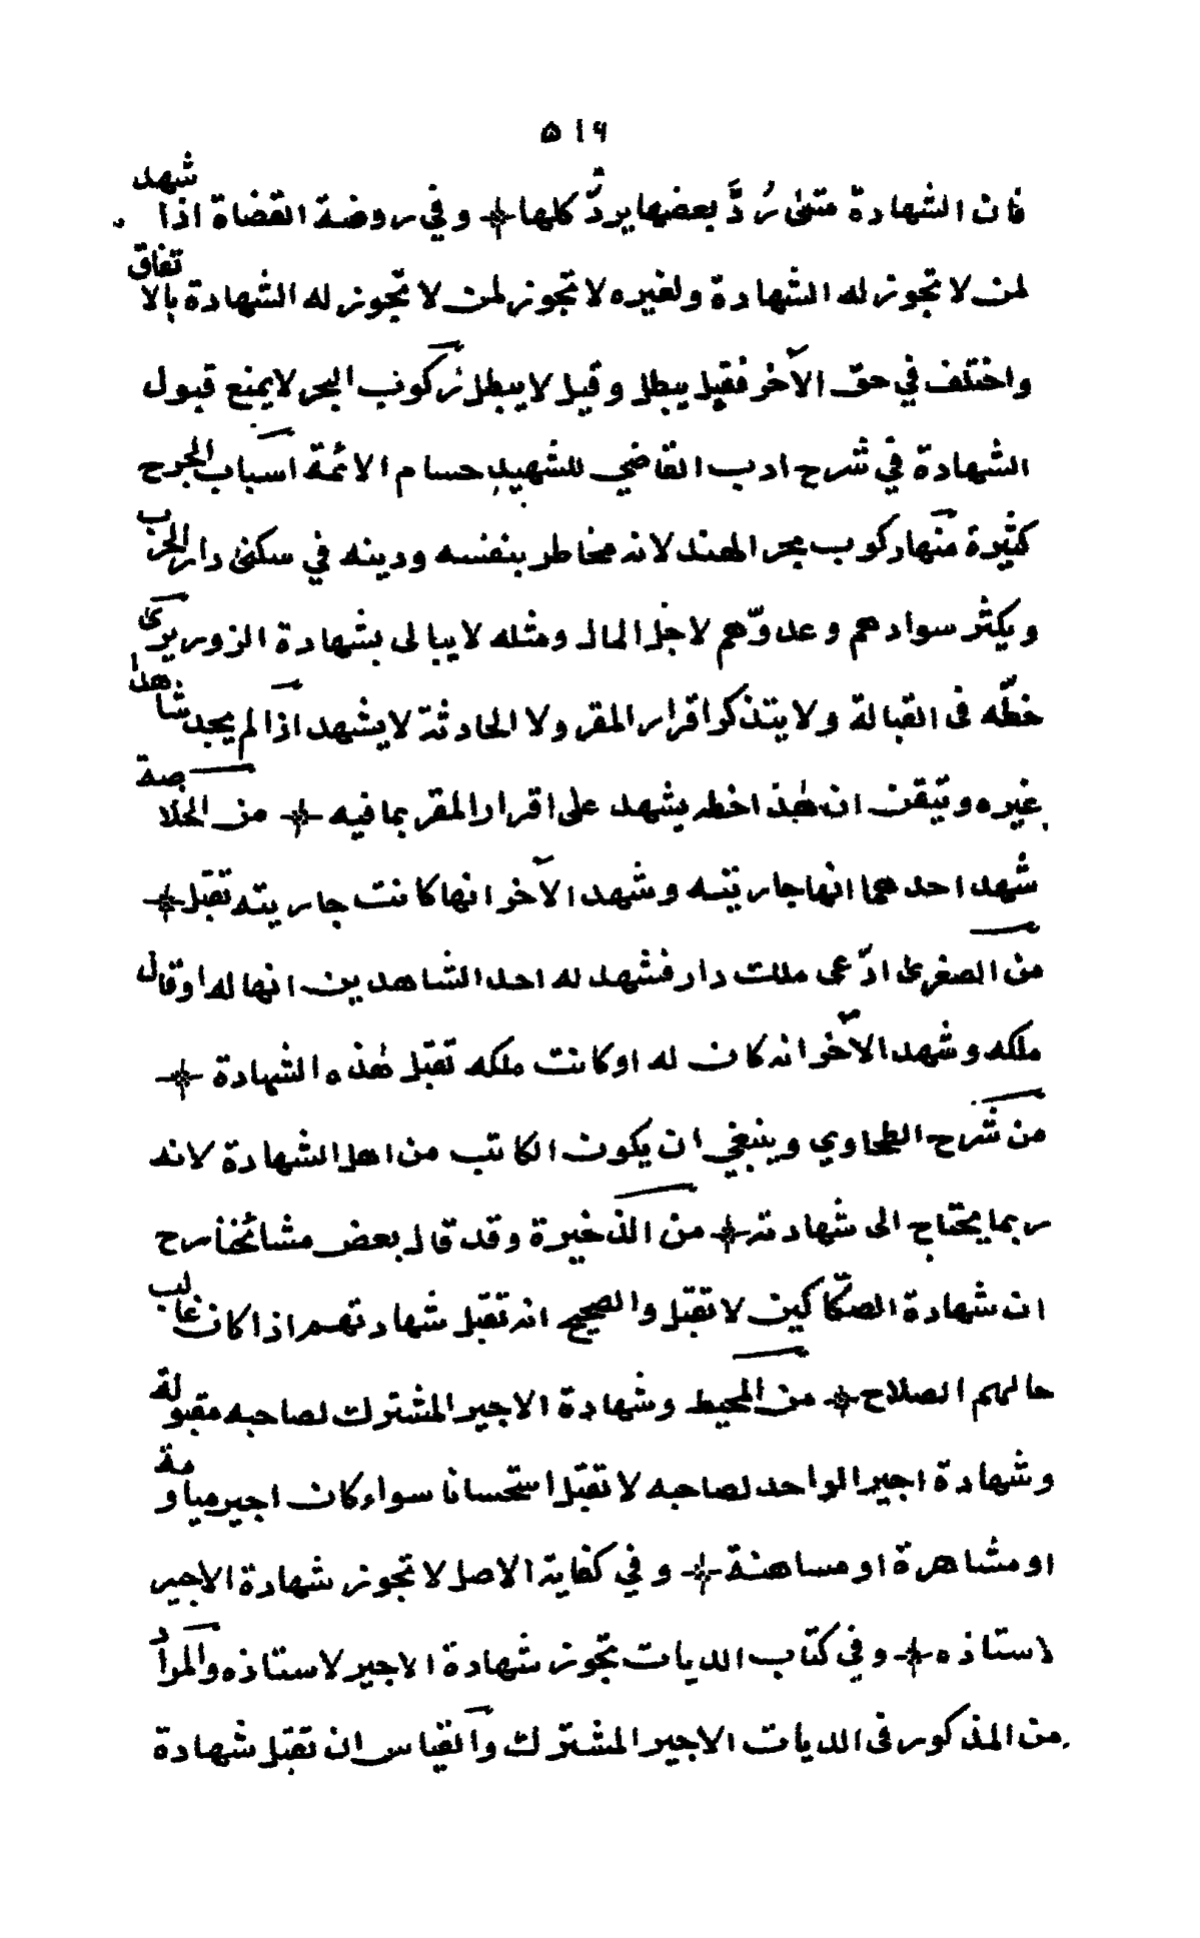 ٥١٦
فان الشهادة متىٰ رُدَّ بعضها يردّ كلها ÷ وفي روضة القضاة اذا شهد
لمن لا تجوز له الشهادة ولغيره لا تجوز لمن لا تجوز له الشهادة بالاتفاق
واختلف في حق الآخر فقيل يبطل وقيل لا يبطل ركوب البحر لا يمنع قبول
الشهادة في شرح ادب القاضي للشهيد حسام الائمة اسباب الجرح
كثيرة منها ركوب بحر الهند لانه مخاطر بنفسه ودينه في سكنىٰ دار الحرب
ويكثر سوادهم وعدوّهم لاجل المال ومثله لا يبالى بشهادة الزور يرىٰ
خطّه فى القبالة ولا يتذكر اقرار المقر ولا الحادثة لا يشهد اذا لم يجد شاهدا
غيره وتيقن ان هٰذا خطه يشهد على اقرار المقر بما فيه ÷ من الخلاصة
شهد احدهما انها جاريته وشهد الآخر انها كانت جاريته تقبل ÷
من الصغرىٰ ادّعى ملك دار فشهد له احد الشاهدين انها له او قال
ملكه وشهد الآخر انه كان له او كانت ملكه تقبل هٰذه الشهادة ÷
من شرح الطحاوي وينبغي ان يكون الكاتب من اهل الشهادة لانه
ربما يحتاج الى شهادته ÷ من الذخيرة وقد قال بعض مشائخنا رح
ان شهادة الصكّاكين لا تقبل والصحيح انه تقبل شهادتهم اذا كان غالب
حالهم الصلاح ÷ من المحيط وشهادة الاجير المشترك لصاحبه مقبولة
وشهادة اجير الواحد لصاحبه لا تقبل استحسانا سواء كان اجير مياومة
او مشاهرة او مسانهة ÷ وفي كفاية الاصل لا تجوز شهادة الاجير
لاستاذه ÷ وفي كتاب الديات تجوز شهادة الاجير لاستاذه والمراد
من المذكور فى الديات الاجير المشترك والقياس ان تقبل شهادة